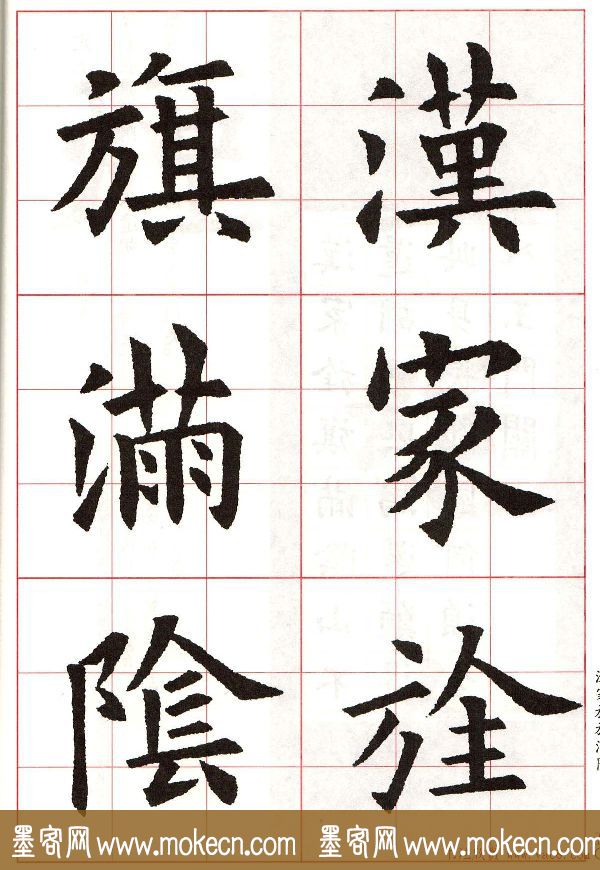 漢家旌
旗滿陰
墨客网 www.mokecn.com 墨客网 www.mokecn.com